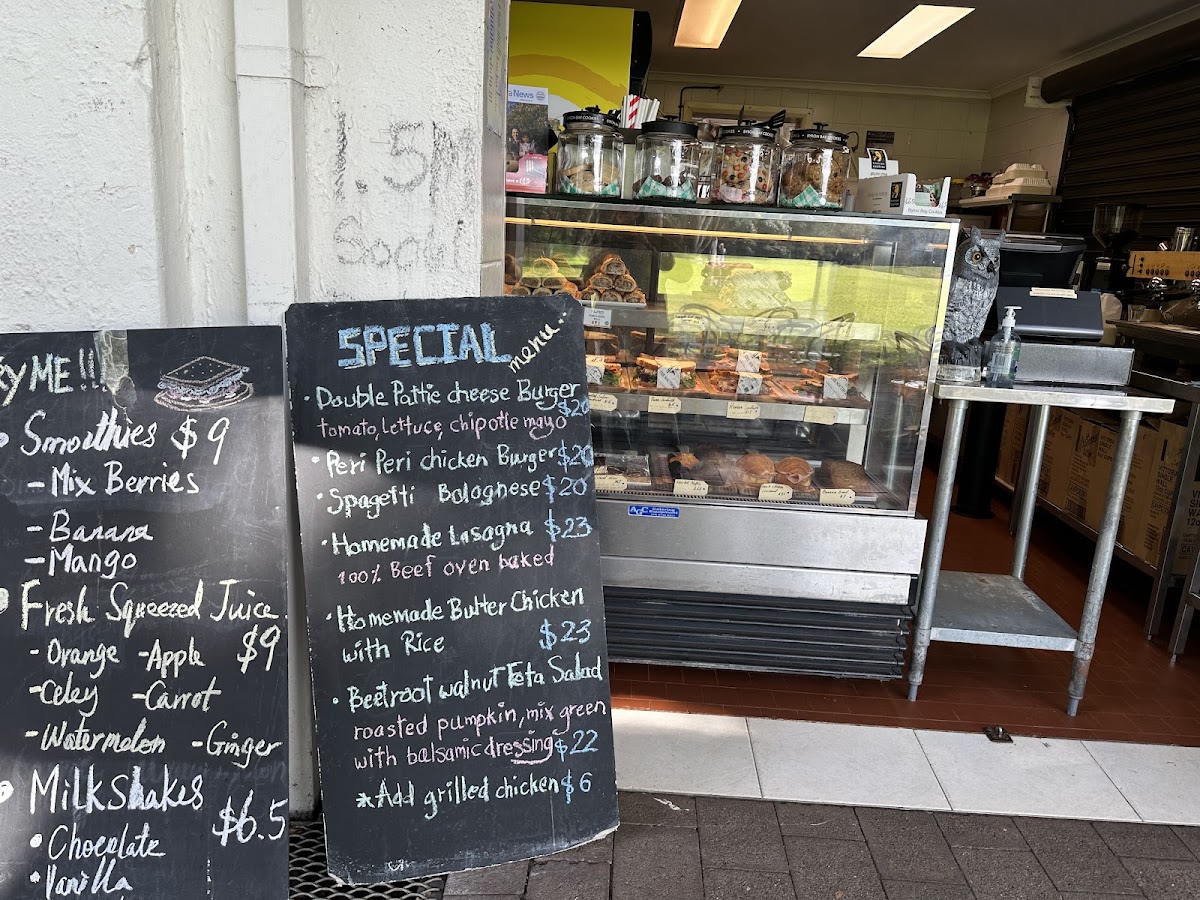 ME!!
Smoothies $9
- Mix Berries
- Banana
- Mango
Fresh Squeezed Juice
- Orange - Apple $9
- Celey - Carrot
- Watermelon - Ginger
Milkshakes
$6.5
Chocolate
Vanilla
SPECIAL menu
Double Pattie cheese Burger
$20
tomato, lettuce, chipotle mayo
Peri Peri chicken Burger $20
Spagetti Bolognese $20
Homemade Lasagna $23
100% Beef oven baked
Homemade Butter Chicken
with Rice $23
Beetroot walnut Feta Salad
roasted pumpkin, mix green
with balsamic dressing $22
*Add grilled chicken $6
1.5M
News
BYRON BAY COOKIES
AGC